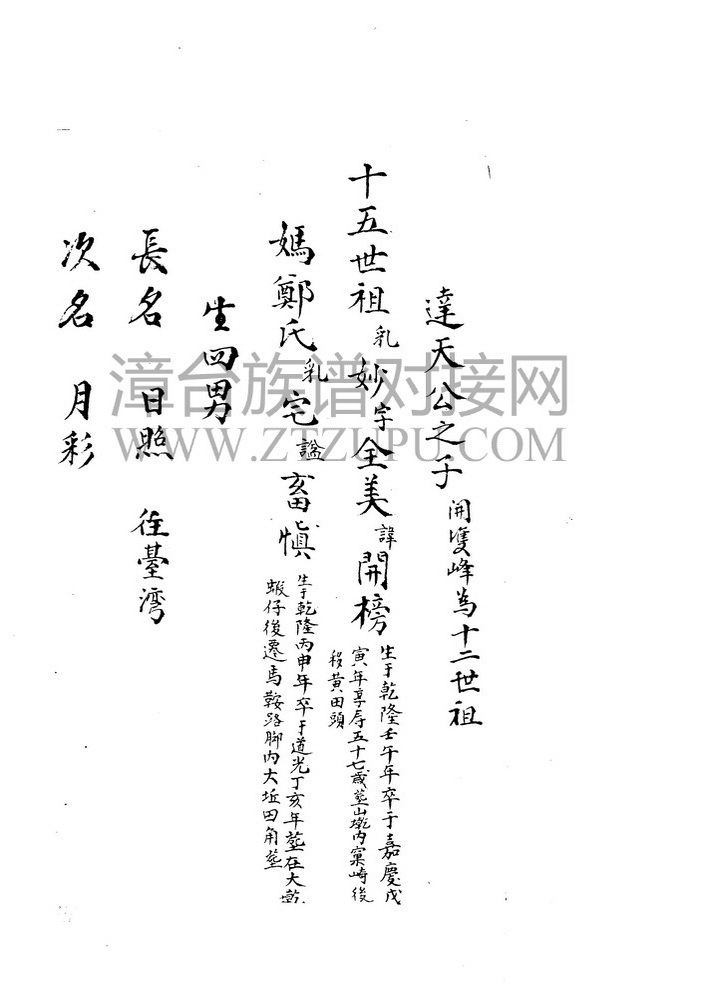 達天公之子 開雙峰為十二世祖
十五世祖 乳 妙 字 全美 諱 開榜 生于乾隆壬午年卒于嘉慶戊
寅年享壽五十七歲塟山墘内窠崎後
移黄田頭
媽鄭氏 乳 宅 謚 畜慎 生于乾隆丙申年卒于道光丁亥年塟在大墘
蝦仔後遷馬鞍路脚内大坵田角塟
生四男
長名 日照 徃臺湾
次名 月彩
漳台族谱对接网
WWW.ZTZUPU.COM